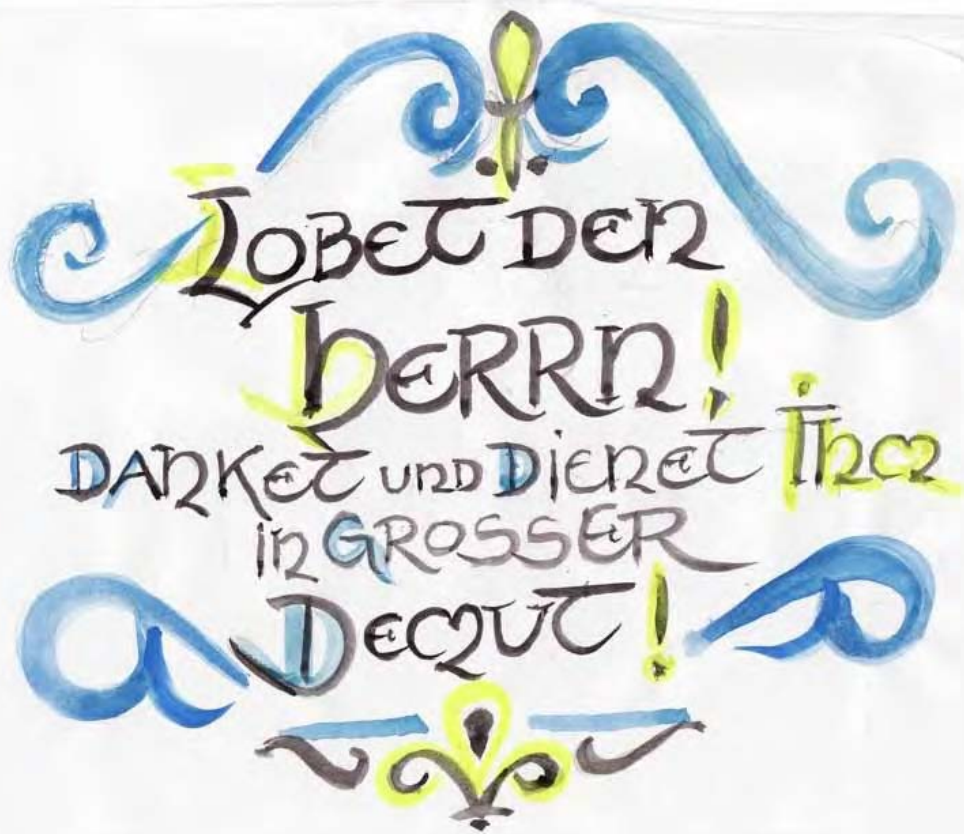 Lobet den
Herrn!
Danket und Dienet Ihm
in Grosser
Demut!